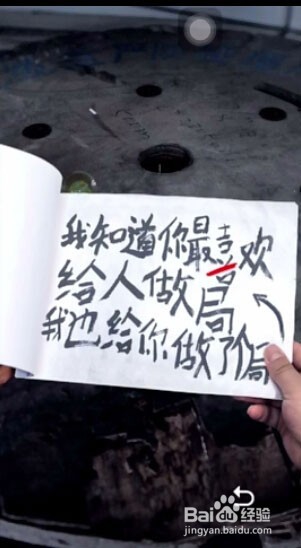 我知道你最喜欢
给人做局
我也给你做了个局
Baidu 经验
jingyan.baidu.com